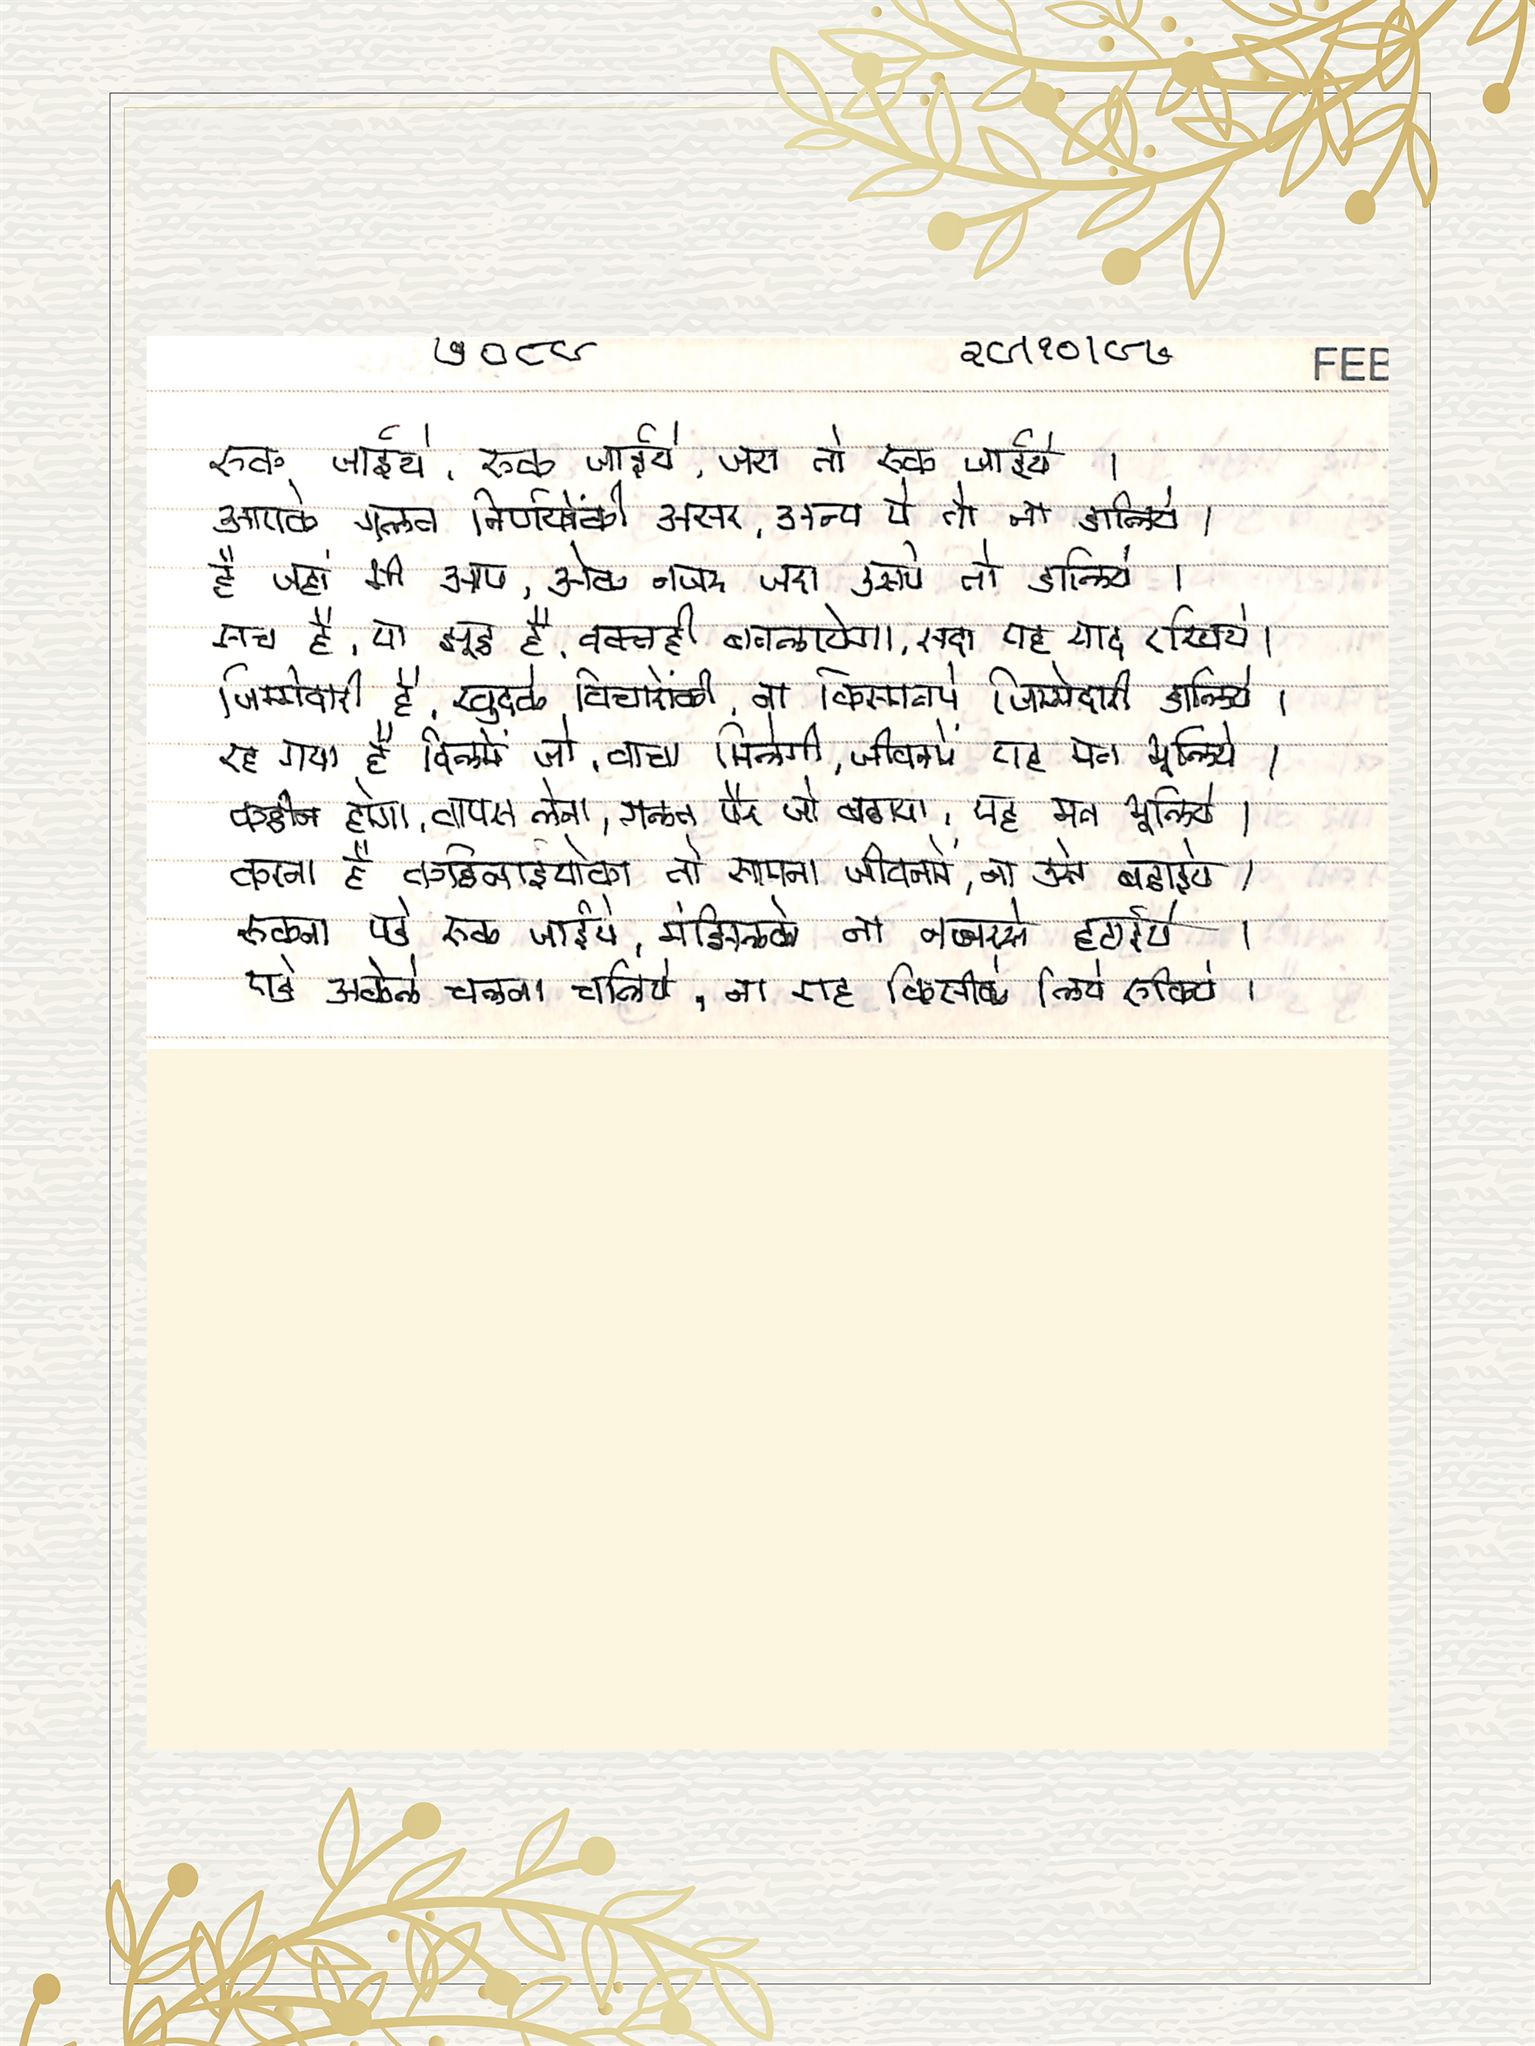 ७०८९ २८।१०।९७ FEB
रूक जाईये, रूक जाईये, जरा तो रूक जाईये ।
आपके गलत निर्णयोंकी असर, अन्य पे तो ना डालिये ।
है जहां भी आप, ओक नजर जरा उसपे तो डालिये ।
सच है, या झूठ है, वक्तही बतलायेगा, सदा यह याद रखिये।
जिम्मेदारी है, खुदके विचारोंकी, ना किस्मतपे जिम्मेदारी डालिये ।
रह गया है दिलमें जो, वाचा मिलेगी, जीवनमें यह मत भूलिये ।
कठीन होगा, वापस लेना, गलत पैर जो बढाया, यह मत भूलिये ।
करना है कठिनाईयोका तो सामना जीवनमें, ना उसे बढाईये ।
रूकना पडे रूक जाईये, मंझिलको ना नजरसे हटाईये ।
पडे अकेले चलना चलिये, ना राह किसीके लिये रूकिये ।